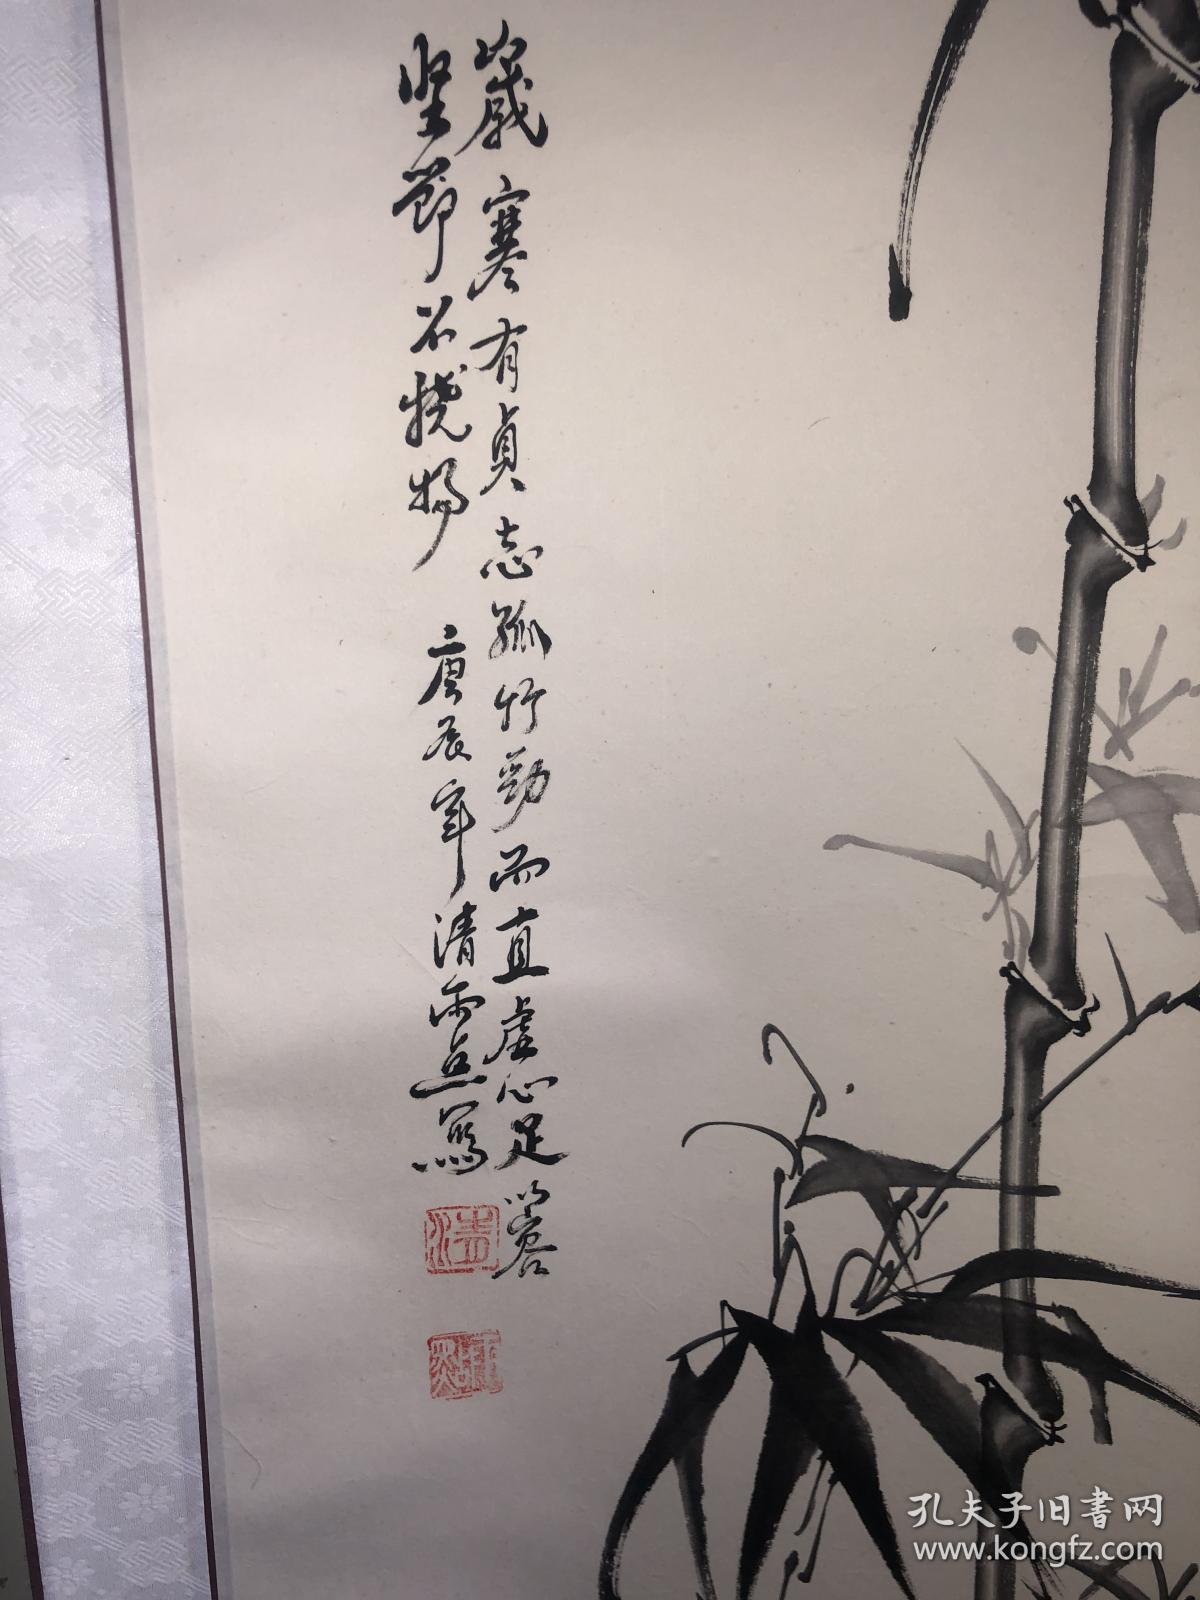 歲寒有貞志孤竹勁而直虛心足
堅節不撓揚 庚辰年清雨点寫
清
孔夫子旧書网
www.kongfz.com